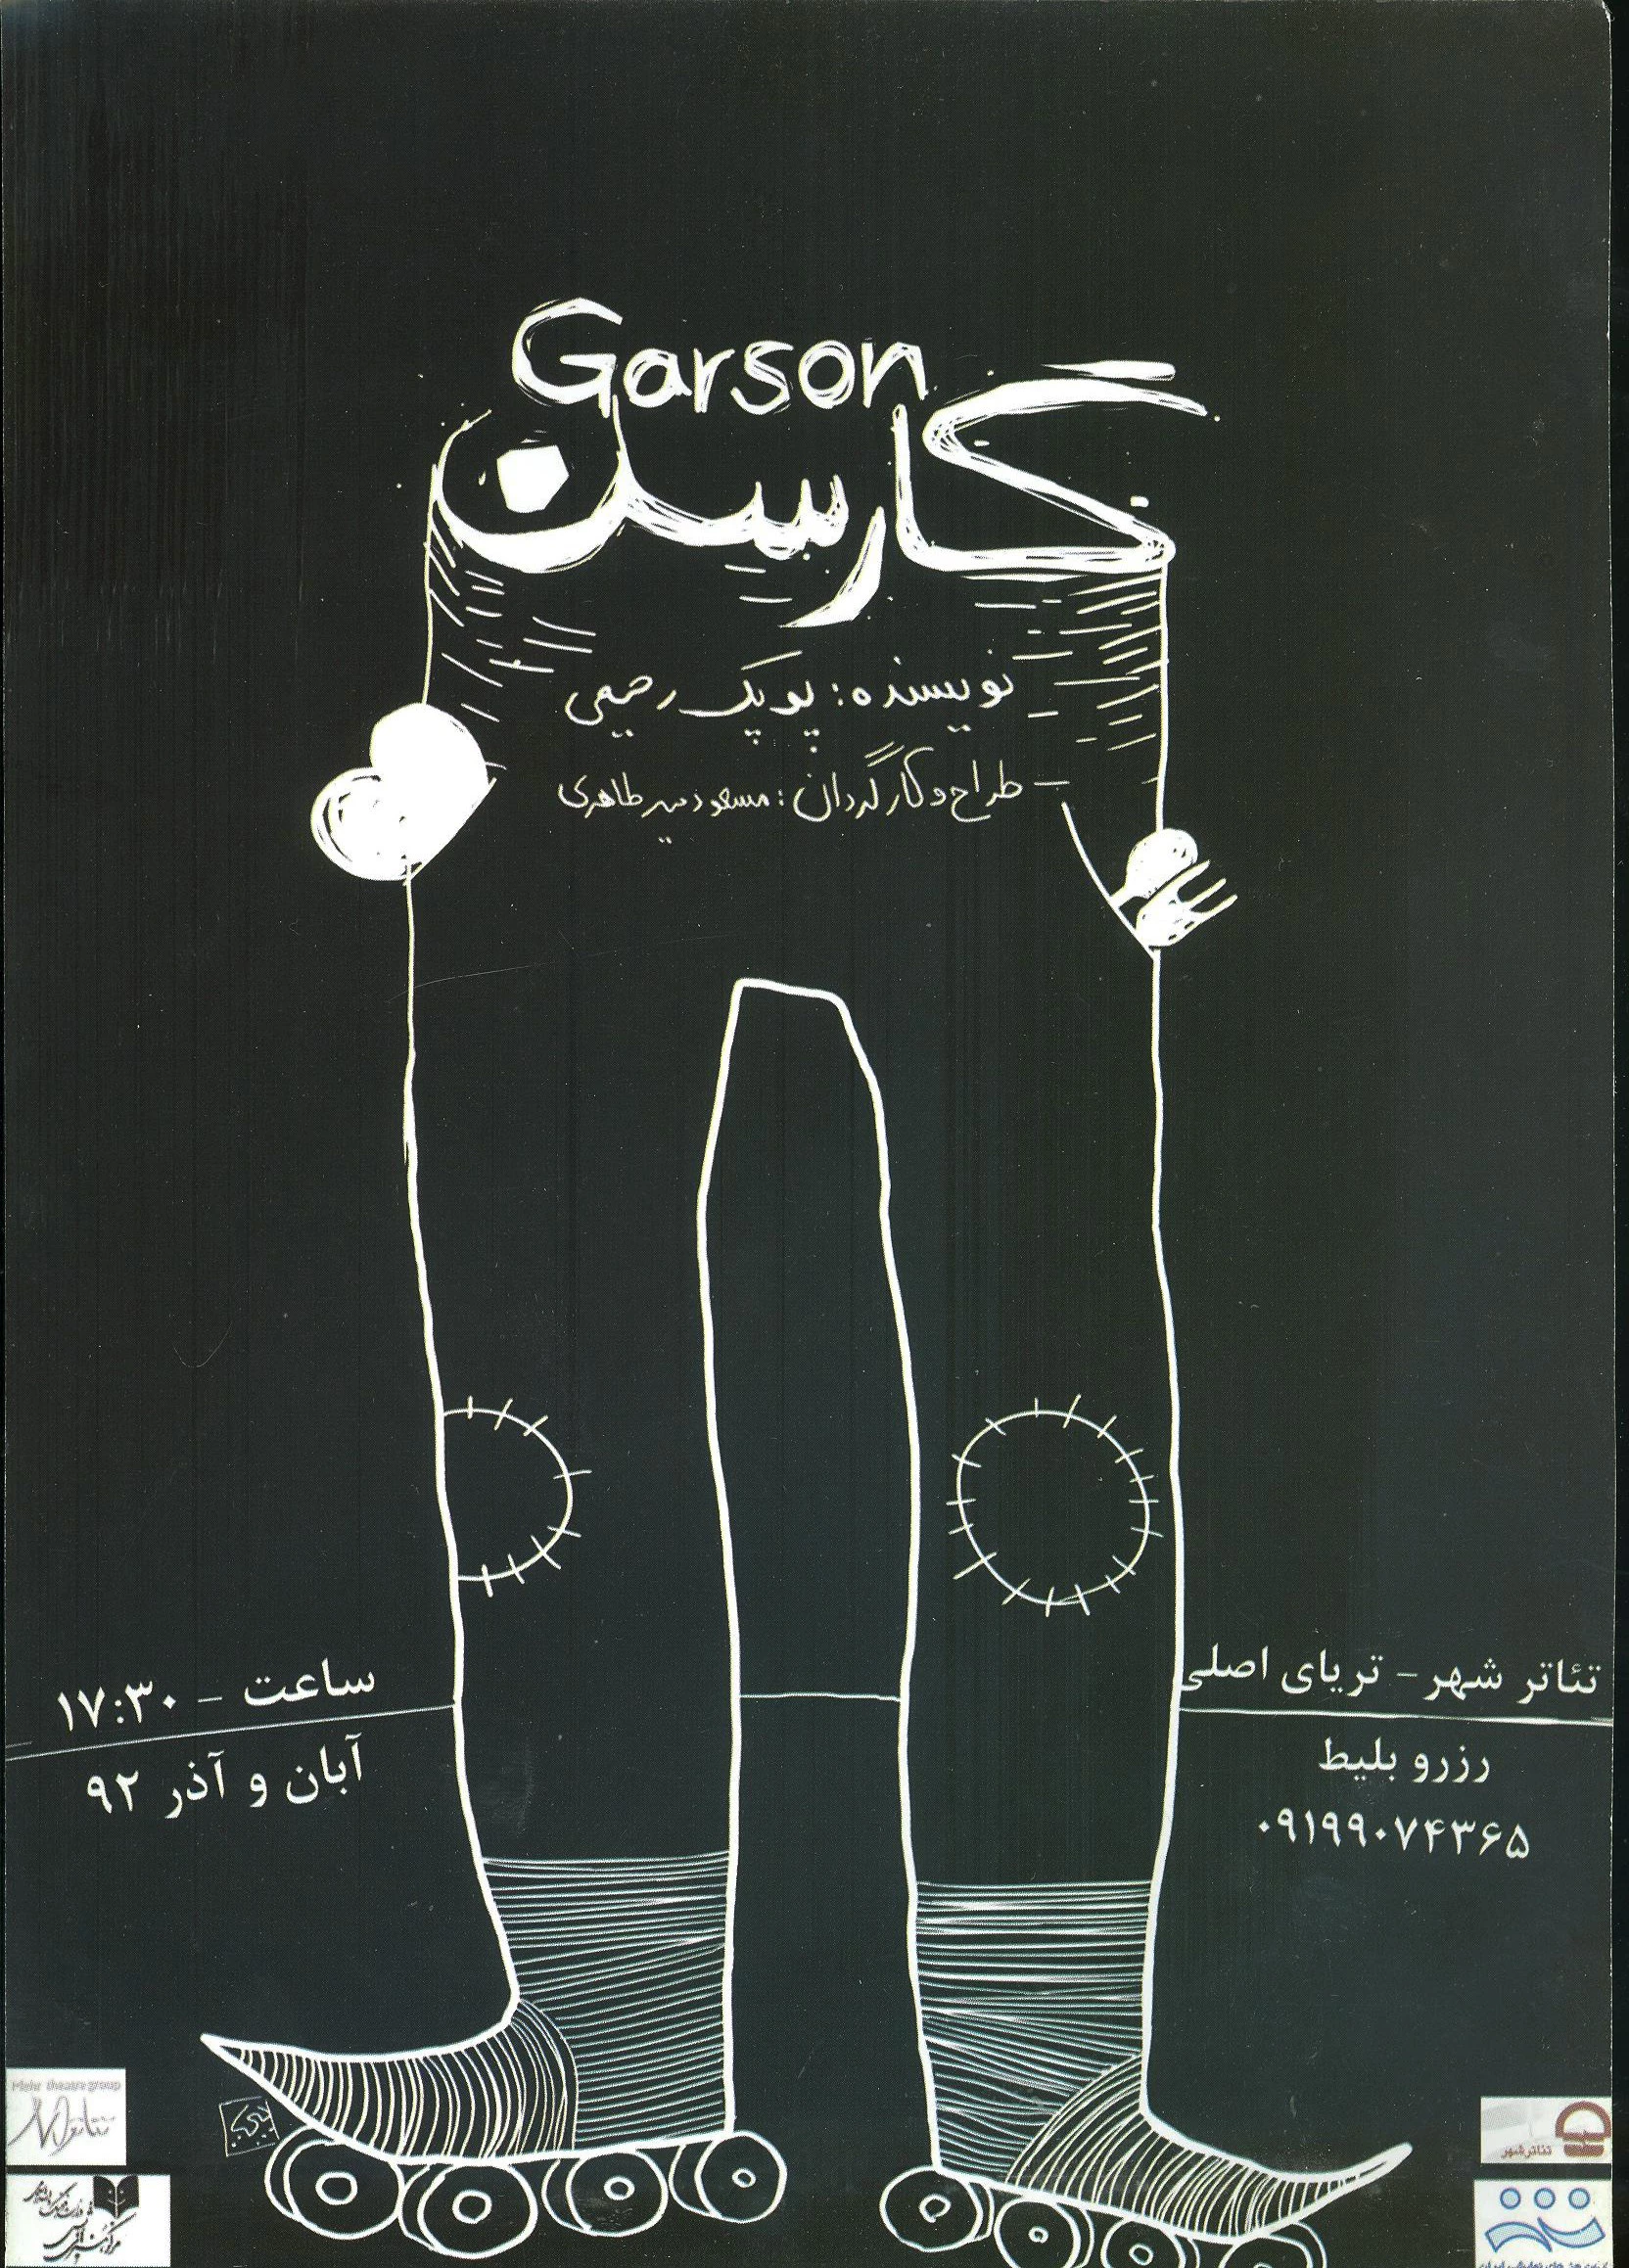 Garson
گارسن
نویسنده: پوپک رحیمی
طراح و کارگردان: مسعود میرطاهری
تئاتر شهر - تریای اصلی
رزرو بلیط
۰۹۱۹۹۰۷۴۳۶۵
ساعت - ۱۷:۳۰
آبان و آذر ۹۲
Mehr theatre group
تئاتر
تئاترشهر